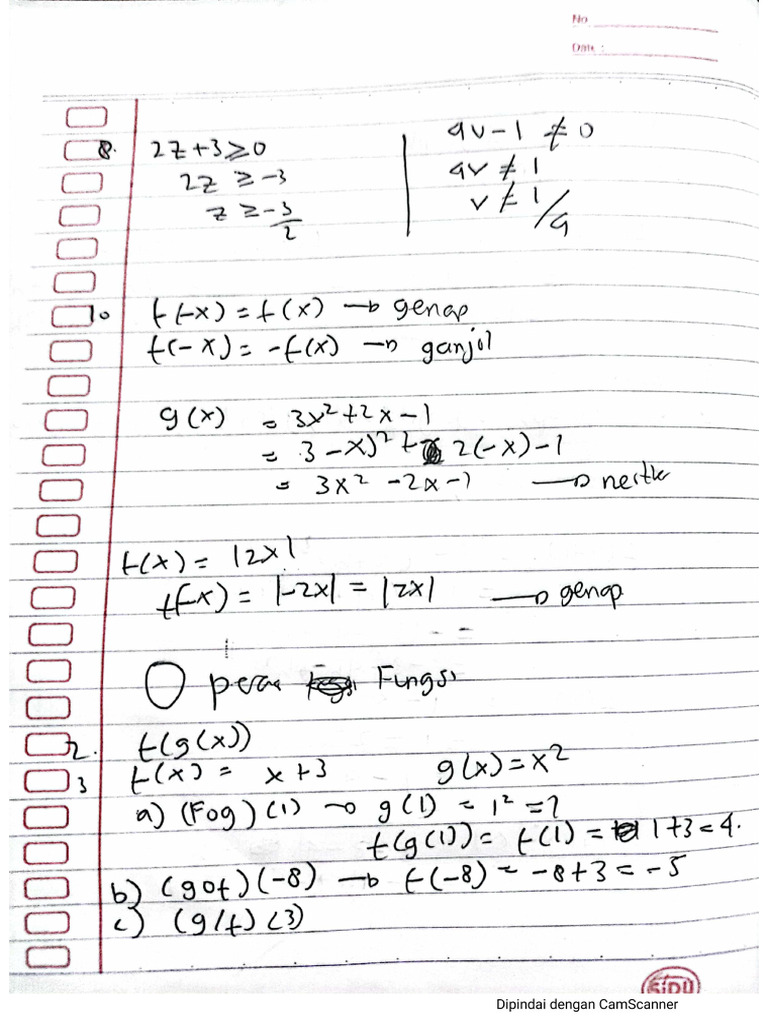 No.
Date :
8. 2z + 3 ≥ 0
2z ≥ -3
z ≥ -3/2
4v - 1 ≠ 0
4v ≠ 1
v ≠ 1/4
10 f(-x) = f(x) → genap
f(-x) = -f(x) → ganjil
g(x) = 3x² + 2x - 1
= 3 -x)² + 2(-x) - 1
= 3x² - 2x - 1 →
f(x) = |2x|
f(-x) = |-2x| = |2x| → genap
Fungsi
2. f(g(x))
3 f(x) = x + 3 g(x) = x²
a) (Fog)(1) → g(1) = 1² = 1
f(g(1)) = f(1) = 1 + 3 = 4.
b) (gof)(-8) → f(-8) = -8 + 3 = -5
c) (g/f)(3)
SIDU
Dipindai dengan CamScanner